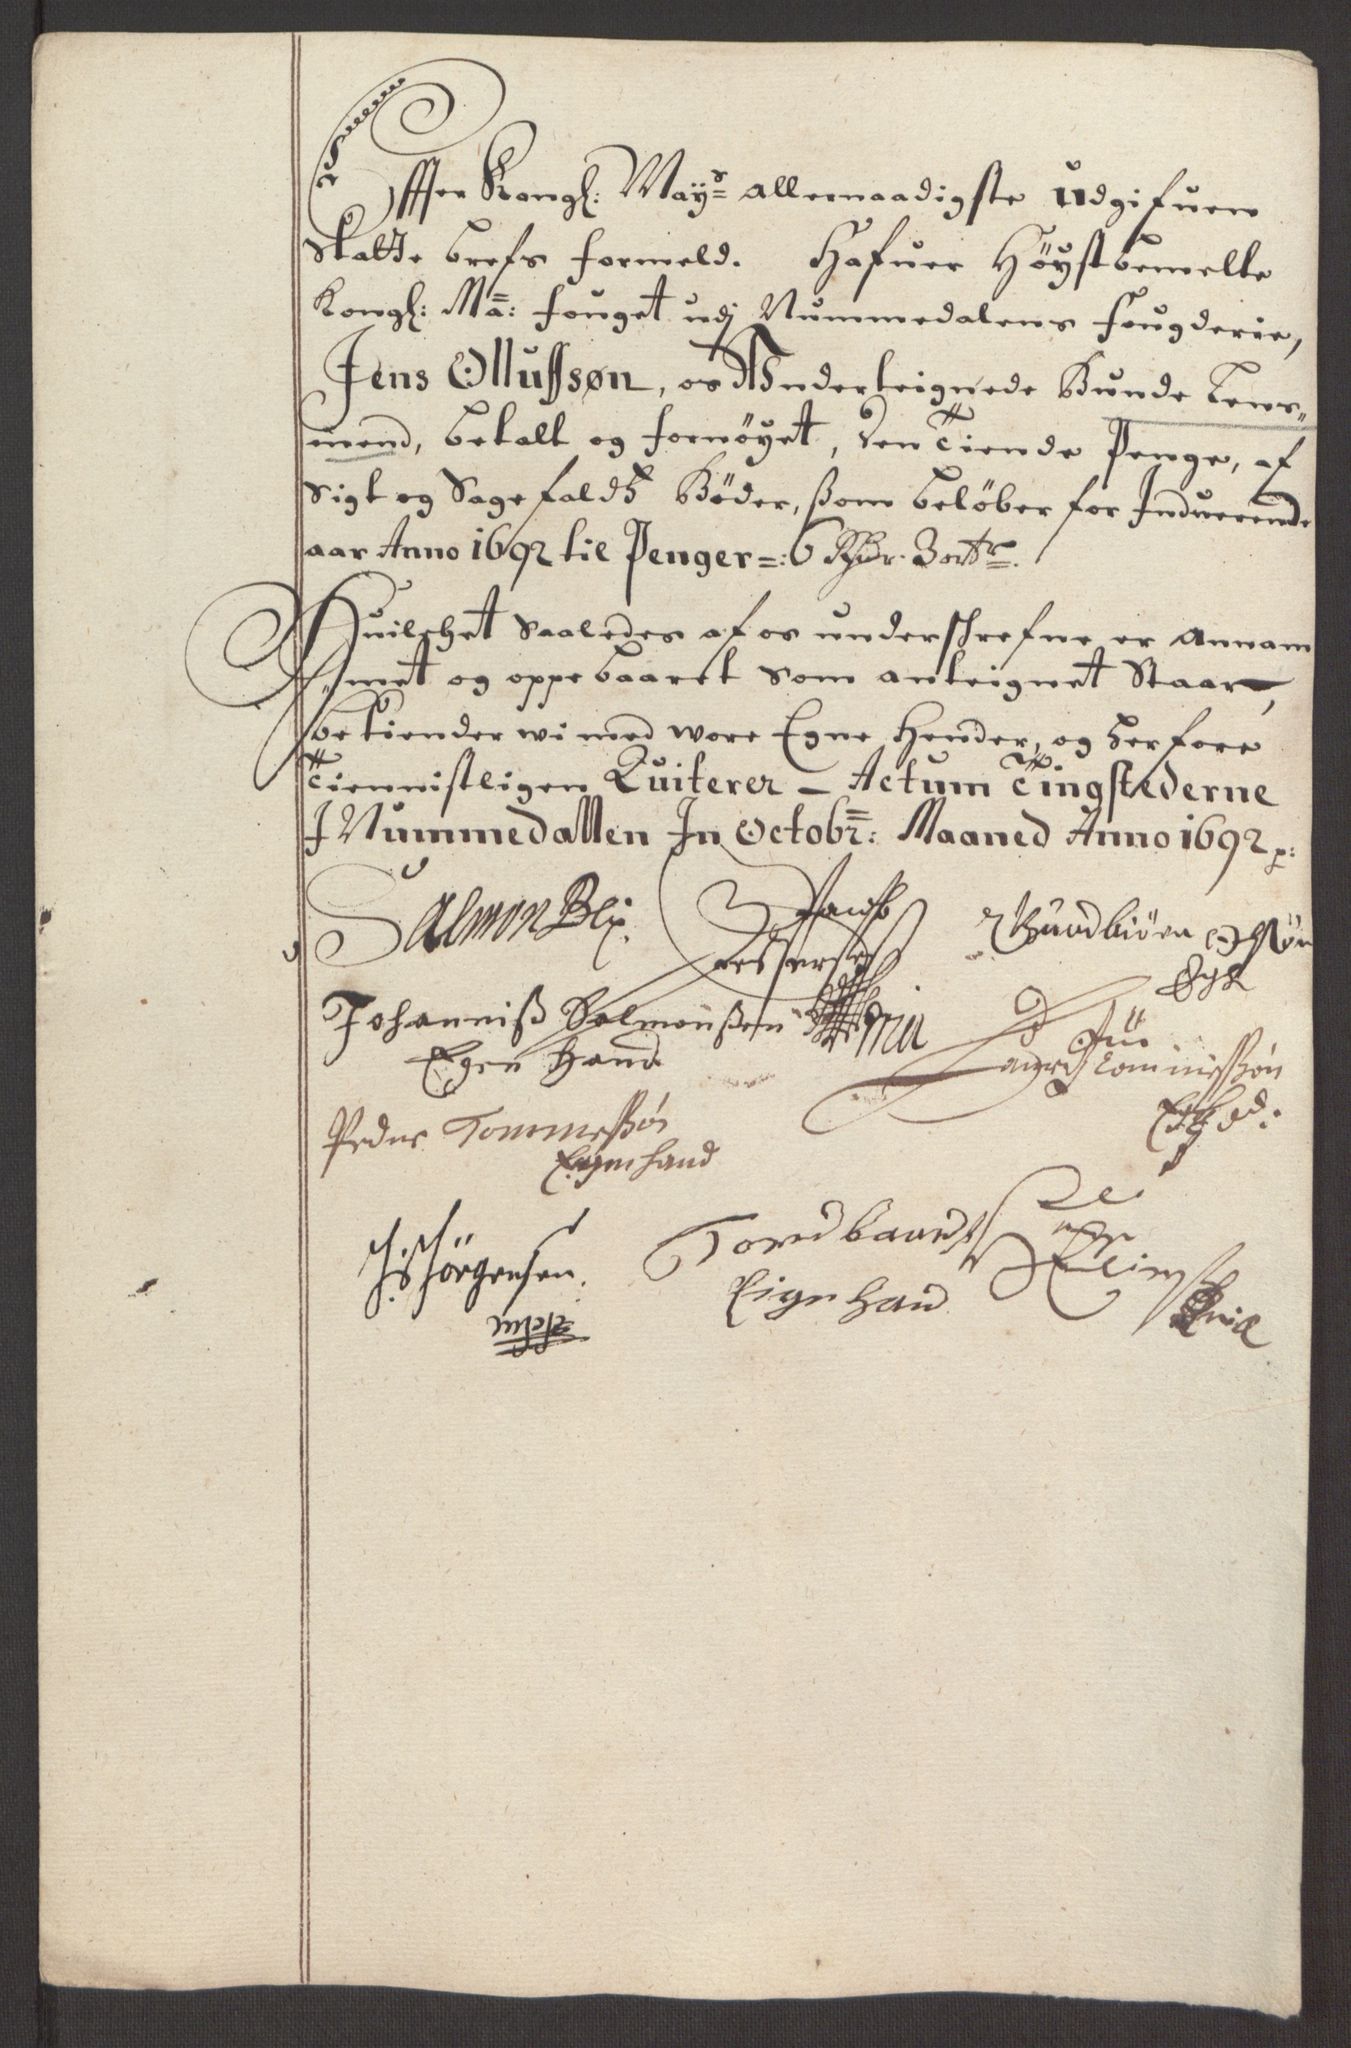 Effter Kongl: Mays allernaadigste udgifuen
Skatte brefs formeld. Hafuer Høystbemelte
Kongl: Ma: fouget udj Nummedalens fougderie,
Jens Olluffsøn, os Underteignede Bunde Lens-
mend, betalt og fornøyet, den Tiende Penge, af
Sigt og Sagefaldz Bøder, som beløber for Indverende
aar Anno 1692 til Penger =: 6 Rixdr. 3 ortr.
Huilchet Saaledes af os underschrefne er annam
met og oppebaaret som anteignet Staar,
bekiender wi med wore Egne Hender, og herfore
Tiennistligen Quiterer - Actum Tingstederne
J Nummedallen In Octobr: Maaned Anno 1692 p:
Salmon Blix. Jacob Gudbiøen Olsøn
Johanniß Salmonßen
Egen Hand
Peder Tommeßøn
Egenhand
Jørgensen. Tord baardsen
Eigen hand